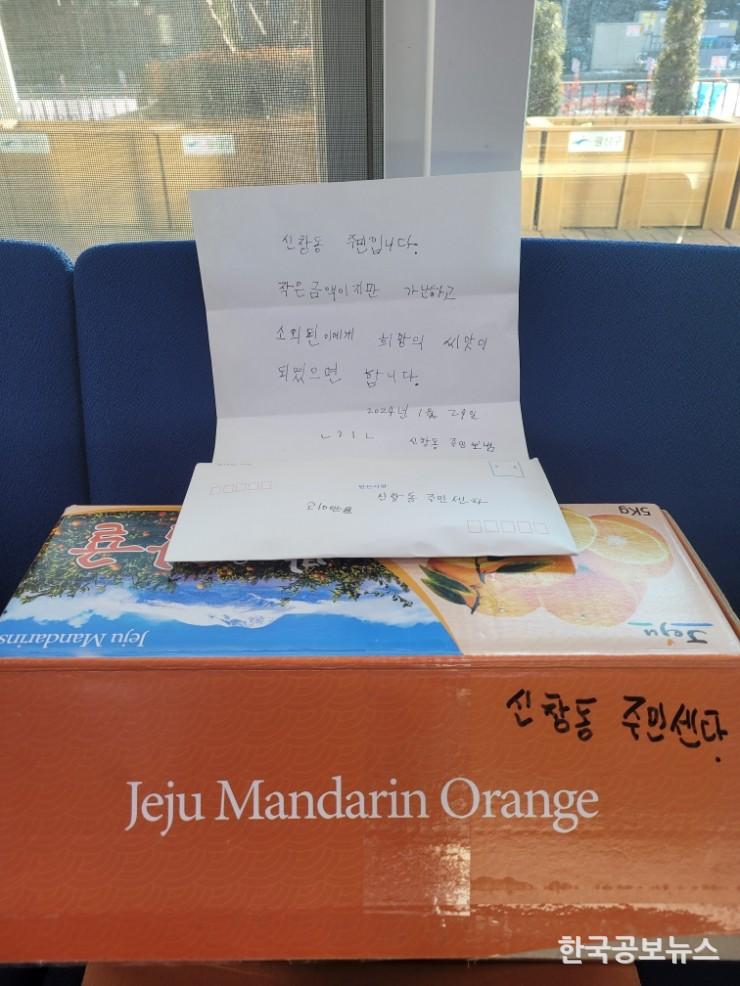 광산구
신창동 주민입니다.
작은금액이지만 가난하고
소외된이에게 희망의 씨앗이
되었으면 합니다.
2024년 1월 29일
신창동 주민
신창동
5Kg
Jeju
Jeju Mandarins
신창동 주민센타.
Jeju Mandarin Orange
한국공보뉴스